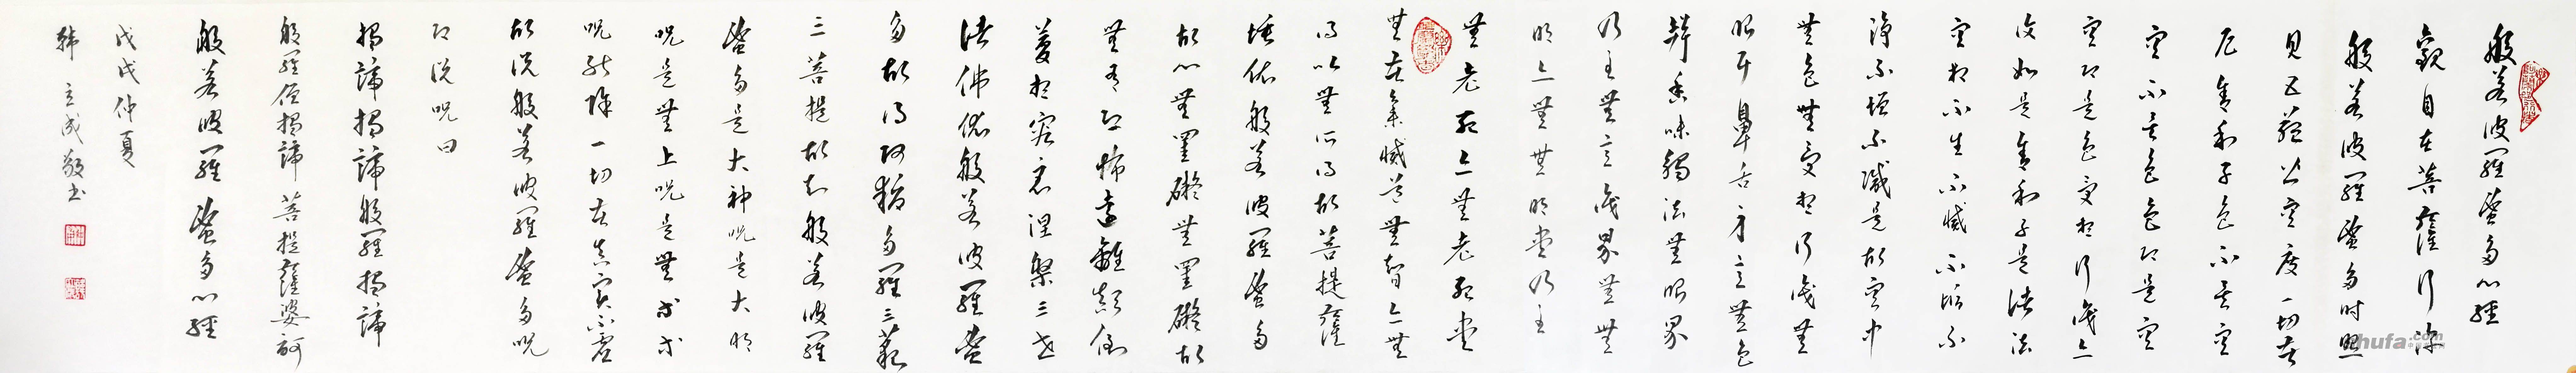 般若波羅蜜多心經
觀自在菩薩行深
般若波羅蜜多時照
見五蘊皆空度一切苦
厄舍利子色不異空
空不異色色即是空
空即是色受想行識亦
復如是舍利子是諸法
空相不生不滅不垢不
淨不增不減是故空中
無色無受想行識無
眼耳鼻舌身意無色
聲香味觸法無眼界
乃至無意識界無無
明亦無無明盡乃至
無老死亦無老死盡
無苦集滅道無智亦無
得以無所得故菩提薩
埵依般若波羅蜜多
故心無罣礙無罣礙故
無有恐怖遠離顛倒
夢想究竟涅槃三世
諸佛依般若波羅蜜
多故得阿耨多羅三藐
三菩提故知般若波羅
蜜多是大神呪是大明
呪是無上呪是無等等
呪能除一切苦真實不虛
故説般若波羅蜜多呪
即説呪曰
揭諦揭諦般羅揭諦
般羅僧揭諦菩提薩婆訶
般若波羅蜜多心經
戊戌仲夏
韓立成敬書